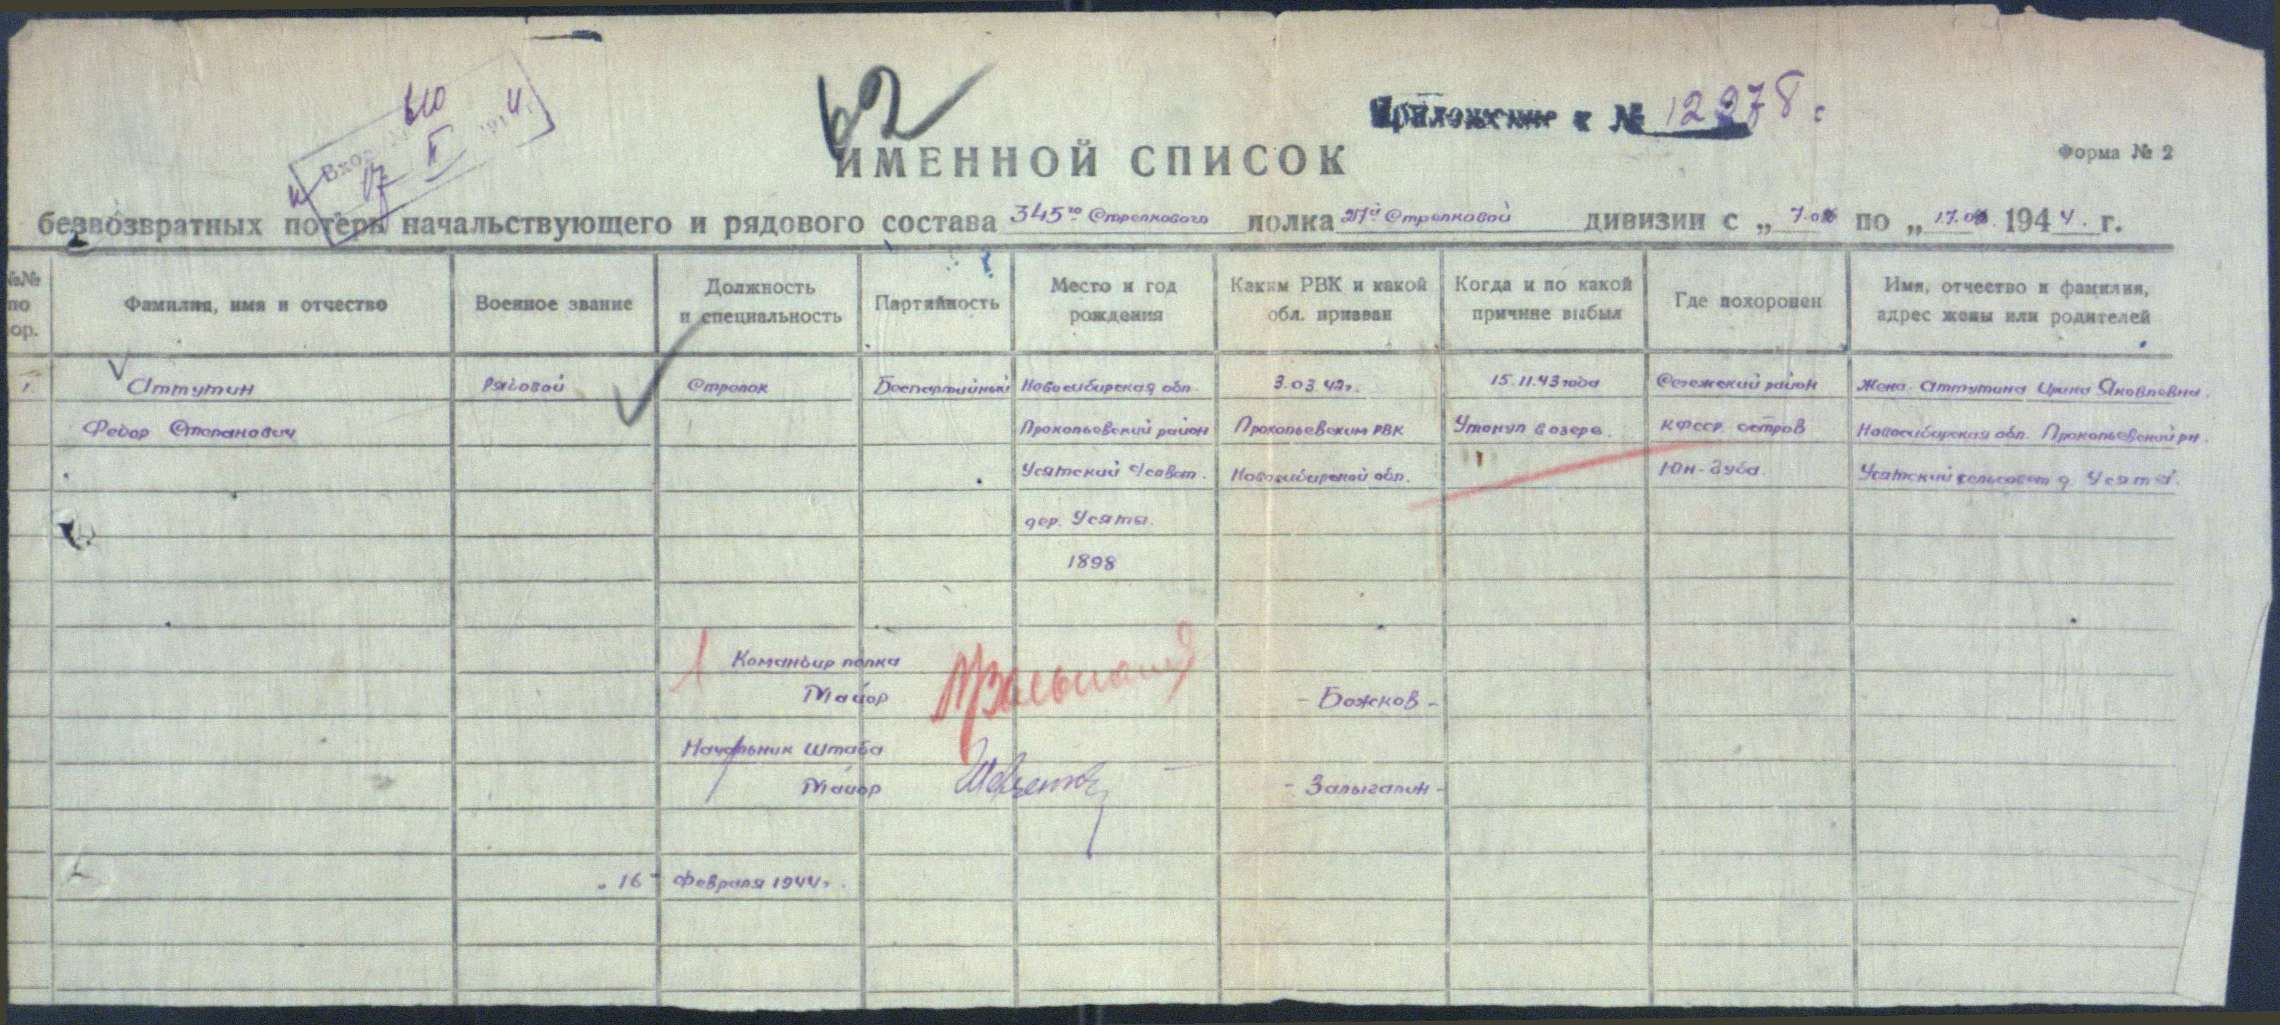 62
Приложение к № 12278
Вход
17 II 1944
ИМЕННОЙ СПИСОК
Форма № 2
безвозвратных потерь начальствующего и рядового состава 345го Стрелкового полка 27й Стрелковой дивизии с „ 7.02 по „ 17.02 1944. г.
№№ по ор.
Фамилия, имя и отчество
Военное звание
Должность и специальность
Партийность
Место и год рождения
Каким РВК и какой обл. призван
Когда и по какой причине выбыл
Где похоронен
Имя, отчество и фамилия, адрес жены или родителей
1. Аттутин Рядовой Стрелок Беспартийный Новосибирская обл. 3.03.42г. 15.11.43 года Сегежский район Жена. Аттутина Ирина Яковлевна.
Федор Степанович Прокопьевский район Прокопьевским РВК Утонул в озере. КФССР. остров Новосибирская обл. Прокопьевский рн.
Усятский с/совет. Новосибирской обл. Юн-дуба. Усятский сельсовет д. Усяты.
дер. Усяты.
1898
1 Командир полка
Майор - Божков -
Начальник штаба
Майор - Залыгалин -
„ 16 " февраля 1944г.